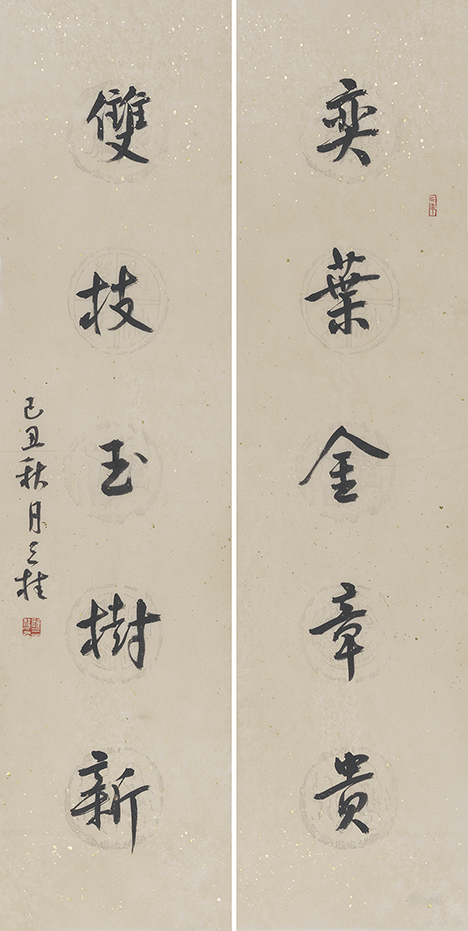 奕葉金章貴
雙枝玉樹新
己丑秋月之桂